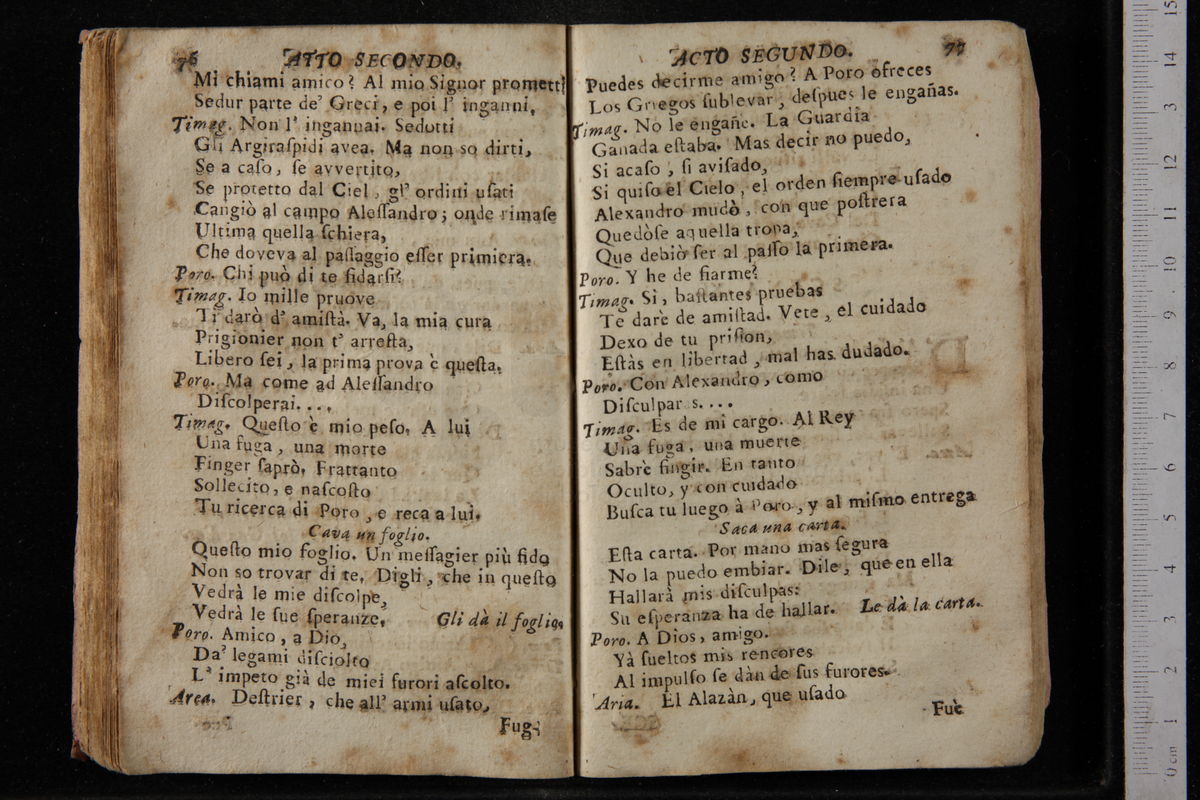 76 ATTO SECONDO.
Mi chiami amico? Al mio Signor promett
Sedur parte de' Greci, e poi l' inganni,
Timag. Non l' ingannai. Sedotti
Gli Argiraſpidi avea. Ma non so dirti,
Se a caſo, ſe avvertito,
Se protetto dal Ciel, gl' ordini uſati
Cangiò al campo Aleſſandro; onde rimaſe
Ultima quella ſchiera,
Che doveva al paſſaggio eſſer primiera.
Poro. Chi può di te fidarſi?
Timag. Io mille pruove
Ti darò d' amiſtà. Va, la mia cura
Prigionier non t' arreſta,
Libero ſei, la prima prova è queſta.
Poro. Ma come ad Aleſſandro
Diſcolperai....
Timag. Queſto è mio peſo. A lui
Una fuga, una morte
Finger ſaprò. Frattanto
Sollecito, e naſcoſto
Tu ricerca di Poro, e reca a lui.
Cava un foglio.
Queſto mio foglio. Un meſſagier più fido
Non so trovar di te. Digli, che in queſto
Vedrà le mie diſcolpe,
Vedrà le ſue ſperanze. Gli dà il foglio.
Poro. Amico, a Dio,
Da' legami diſciolto
L' impeto già de miei furori aſcolto.
Area. Deſtrier, che all' armi uſato,
Fug-
ACTO SEGUNDO. 77
Puedes decirme amigo? A Poro ofreces
Los Griegos ſublevar, deſpues le engañas.
Timag. No le engañè. La Guardia
Ganada eſtaba. Mas decir no puedo,
Si acaſo, ſi aviſado,
Si quiſo el Cielo, el orden ſiempre uſado
Alexandro mudò, con que poſtrera
Quedòſe aquella tropa,
Que debiò ſer al paſſo la primera.
Poro. Y he de fiarme?
Timag. Si, baſtantes pruebas
Te darè de amiſtad. Vete, el cuidado
Dexo de tu priſion,
Eſtàs en libertad, mal has dudado.
Poro. Con Alexandro, como
Diſculpar s....
Timag. Es de mi cargo. Al Rey
Una fuga, una muerte
Sabrè fingir. En tanto
Oculto, y con cuidado
Buſca tu luego à Poro, y al miſmo entrega
Saca una carta.
Eſta carta. Por mano mas ſegura
No la puedo embiar. Dile, que en ella
Hallarà mis diſculpas:
Su eſperanza ha de hallar. Le dà la carta.
Poro. A Dios, amigo.
Yà ſueltos mis rencores
Al impulſo ſe dàn de ſus furores.
Aria. El Alazàn, que uſado
Fuè